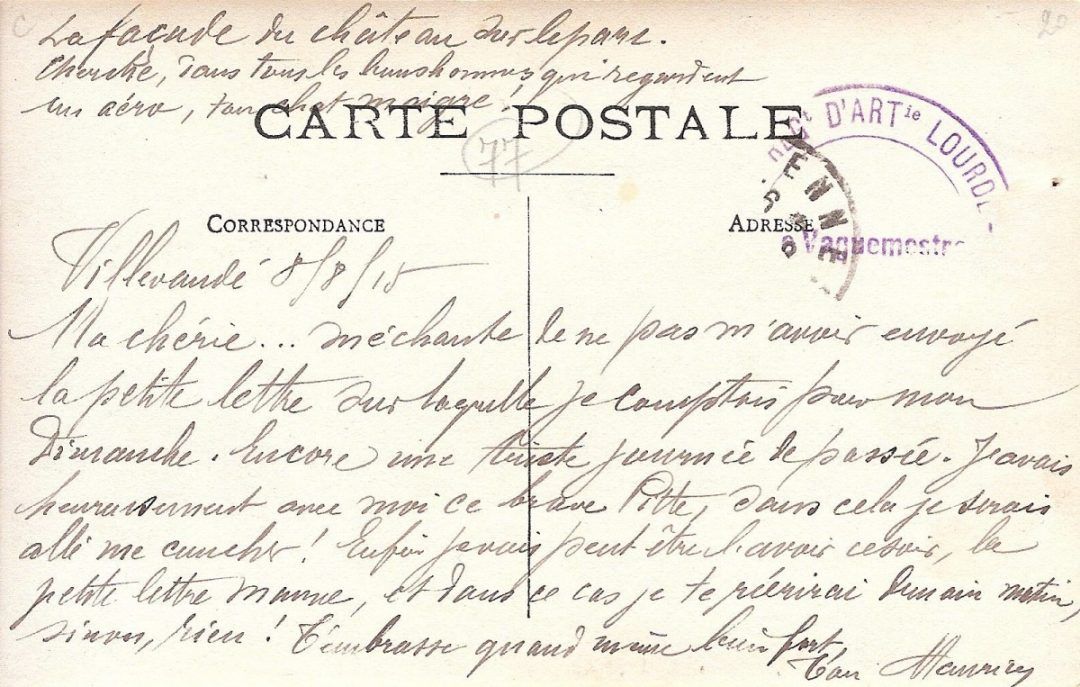 La façade du château sur le parc.
Cherche, dans tous les bonshommes qui regardent
un aéro, ton chat maigre !
20
CARTE POSTALE
77
D'ARTie LOURDE
ENNE
CORRESPONDANCE
ADRESSE
Vaguemestre
Villevaudé 8/8/15
Ma chérie... méchante de ne pas m'avoir envoyé
la petite lettre sur laquelle je comptais pour mon
Dimanche. Encore une triste journée de passée. J'avais
heureusement avec moi ce brave Pitte, sans cela je serais
allé me coucher ! Enfin je vais peut être l'avoir ce soir, la
petite lettre mauve, et dans ce cas je te réécrirai demain matin,
sinon, rien ! T'embrasse quand même bien fort,
Ton Maurice